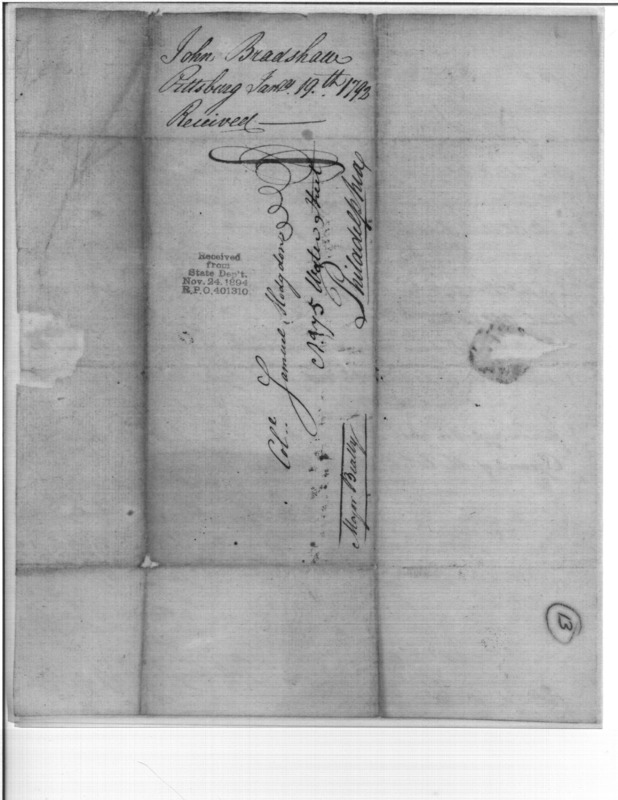 John Bradshaw
Pittsburg Jany. 19.th 1792
Received
Received
from
State Dep't.
Nov. 24. 1894
R.P.O. 401310
Colo.
Samuel Hodgdon
No. 75 Water Street
Philadelphia
Major Beatty
13